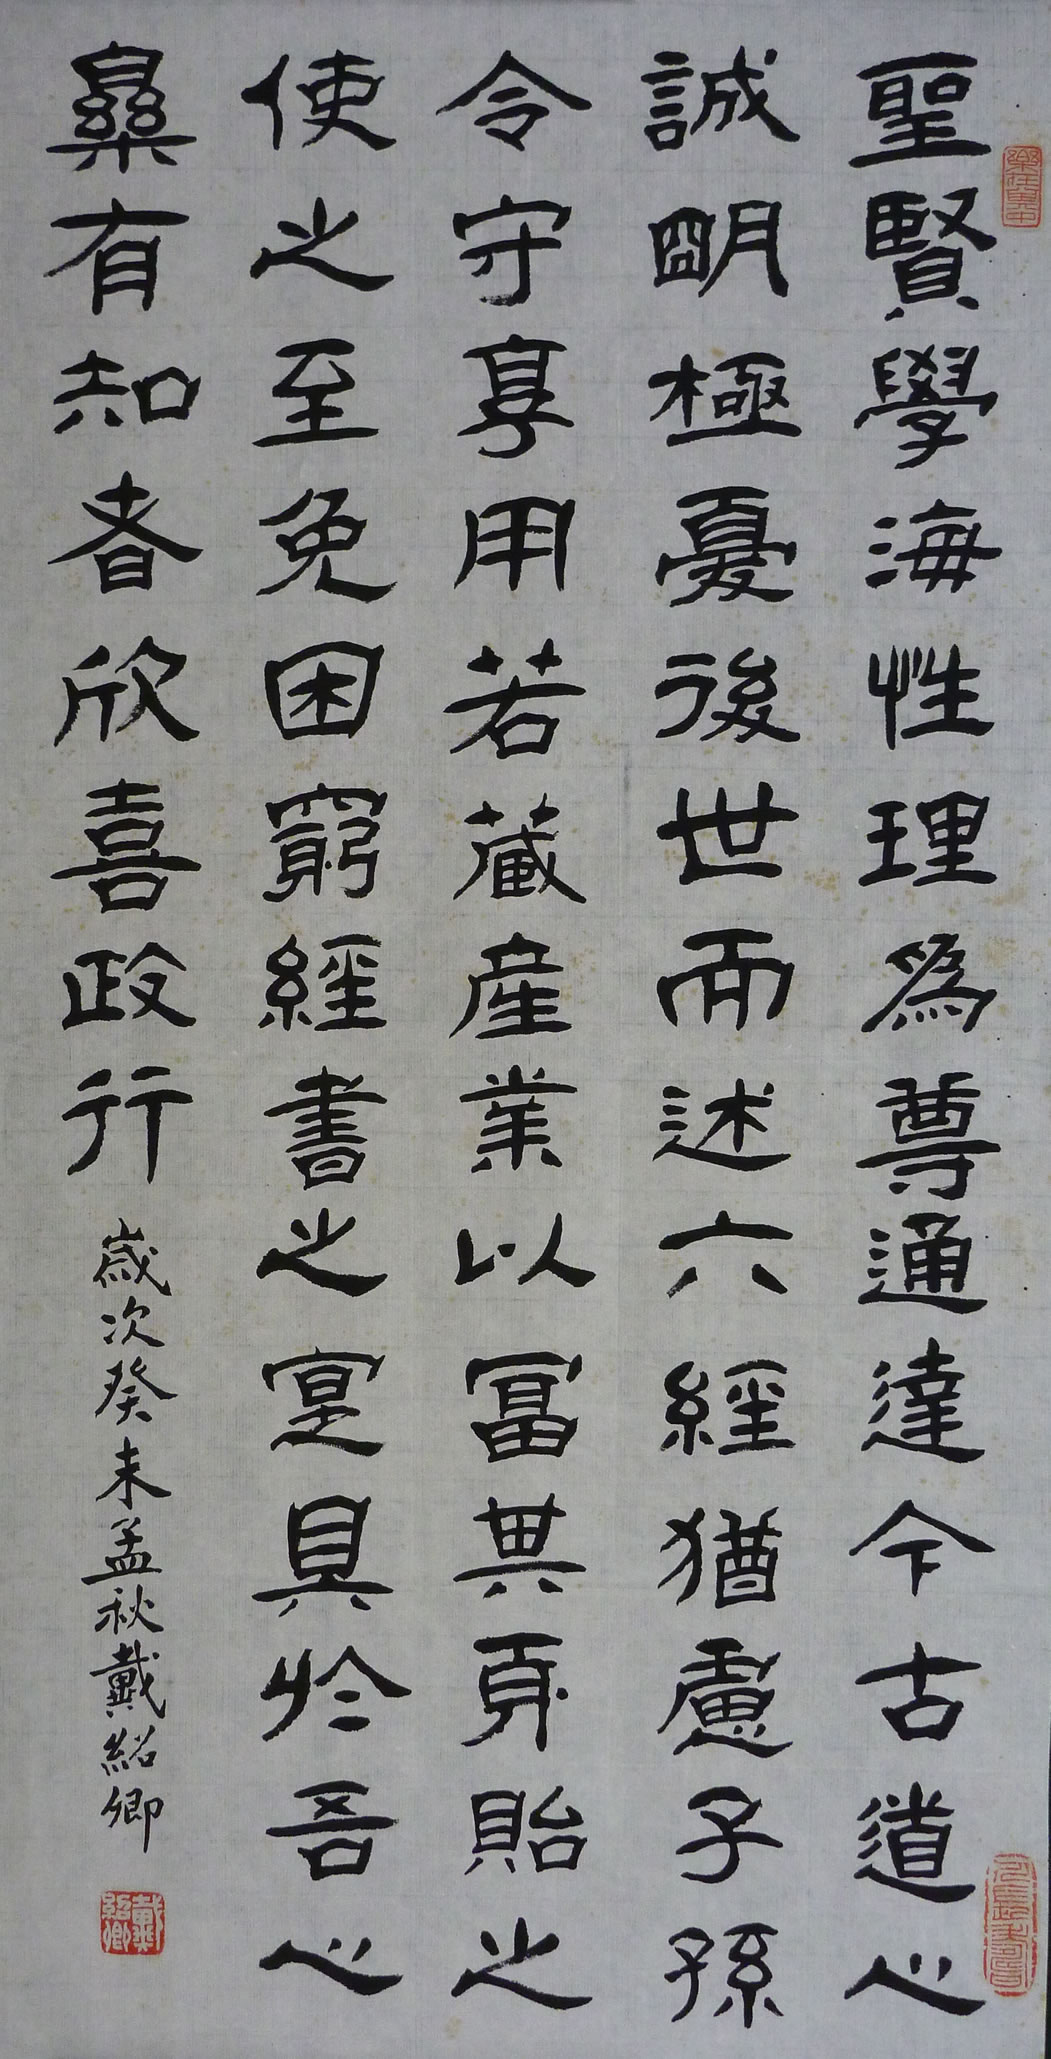 聖賢學海性理為尊通達今古道心
誠明極憂後世而述六經猶慮子孫
令守享用若藏產業以富其身貽之
使之至免困窮經書之寔具於吾心
彙有知者欣喜政行
歲次癸未孟秋戴紹卿
戴紹卿